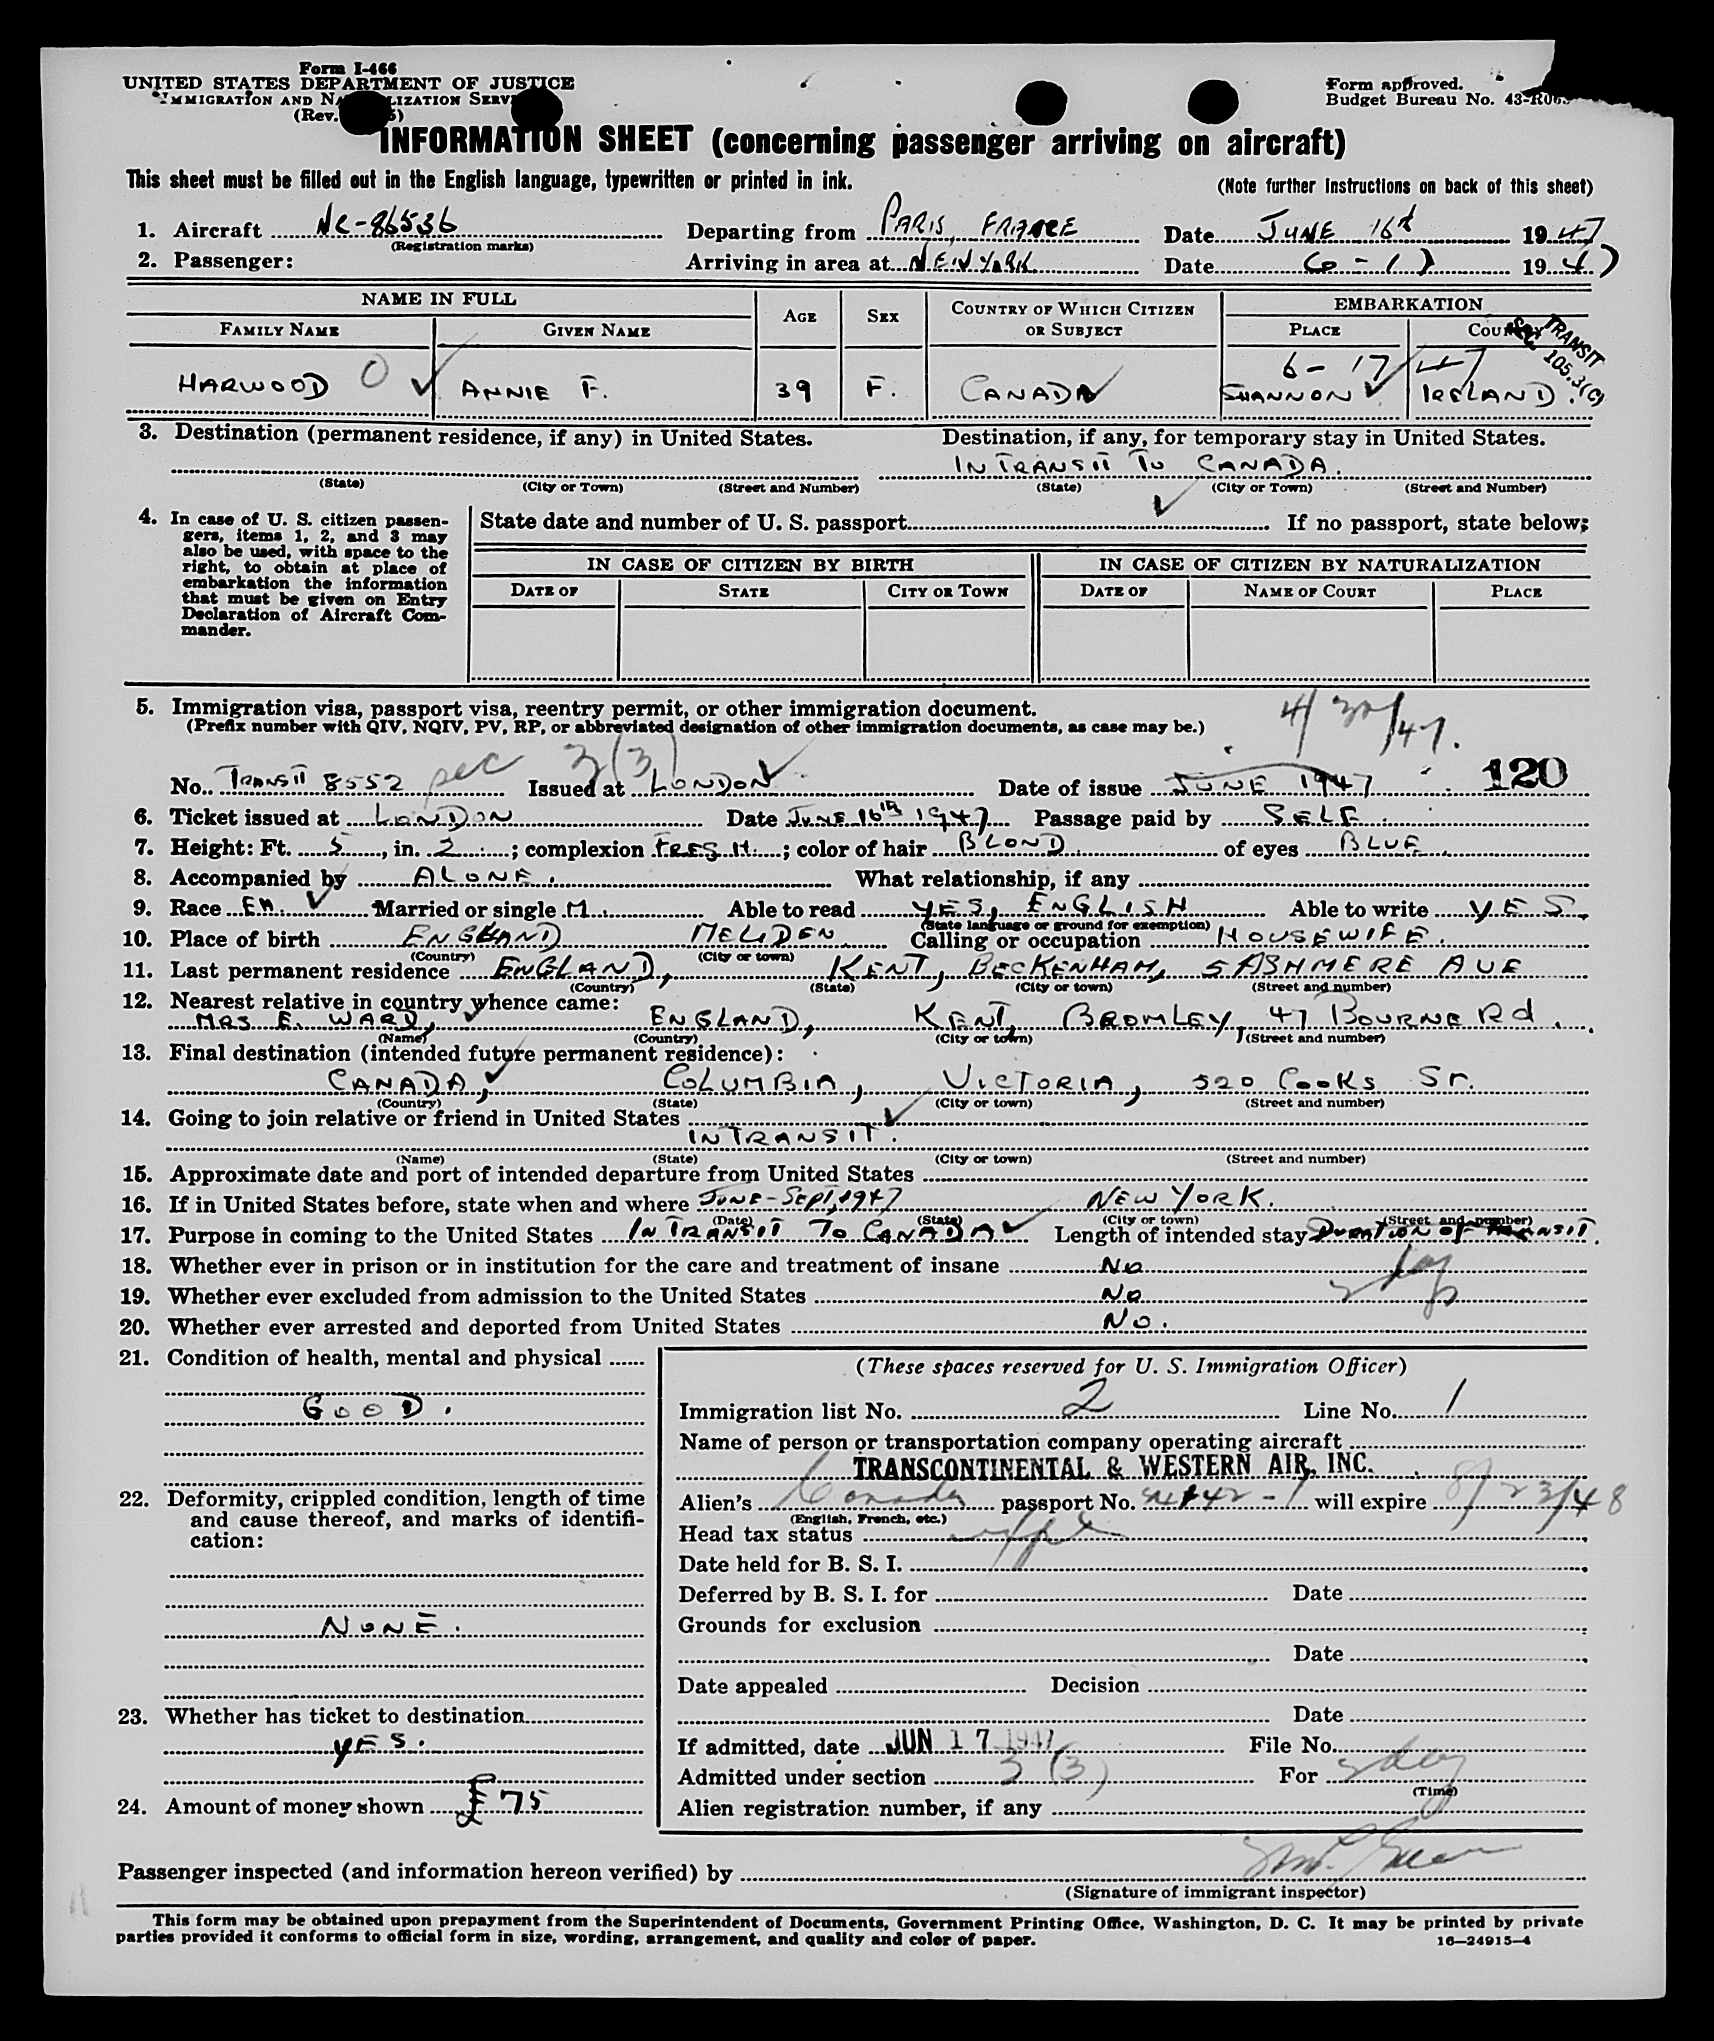 Form I-466
UNITED STATES DEPARTMENT OF JUSTICE
IMMIGRATION AND NATURALIZATION SERVICE
(Rev.
Form approved.
Budget Bureau No. 43-R06
INFORMATION SHEET (concerning passenger arriving on aircraft)
This sheet must be filled out in the English language, typewritten or printed in ink.
(Note further instructions on back of this sheet)
1. Aircraft NC-86536 Departing from PARIS, FRANCE Date JUNE 16th 1947
(Registration marks)
2. Passenger: Arriving in area at NEW YORK Date 6-17 1947
NAME IN FULL AGE SEX COUNTRY OF WHICH CITIZEN OR SUBJECT EMBARKATION
FAMILY NAME GIVEN NAME PLACE COUNTRY
TRANSIT
SEC. 105.3(C)
6-17/47
HARWOOD O ANNIE F. 39 F. CANADA SHANNON IRELAND.
3. Destination (permanent residence, if any) in United States. Destination, if any, for temporary stay in United States.
IN TRANSIT TO CANADA.
(State) (City or Town) (Street and Number) (State) (City or Town) (Street and Number)
4. In case of U. S. citizen passen-
gers, items 1, 2, and 3 may
also be used, with space to the
right, to obtain at place of
embarkation the information
that must be given on Entry
Declaration of Aircraft Com-
mander.
State date and number of U. S. passport If no passport, state below;
IN CASE OF CITIZEN BY BIRTH IN CASE OF CITIZEN BY NATURALIZATION
DATE OF STATE CITY OR TOWN DATE OF NAME OF COURT PLACE
5. Immigration visa, passport visa, reentry permit, or other immigration document.
(Prefix number with QIV, NQIV, PV, RP, or abbreviated designation of other immigration documents, as case may be.)
4/30/47.
3(3)
No. TRANSIT 8552 sec Issued at LONDON Date of issue JUNE 1947 120
6. Ticket issued at LONDON Date JUNE 16th 1947 Passage paid by SELF.
7. Height: Ft. 5, in. 2; complexion FRESH; color of hair BLOND of eyes BLUE
8. Accompanied by ALONE. What relationship, if any
9. Race EN. Married or single M. Able to read YES, ENGLISH Able to write YES.
(State language or ground for exemption)
10. Place of birth ENGLAND MELIDEN Calling or occupation HOUSEWIFE.
(Country) (City or town)
11. Last permanent residence ENGLAND, KENT, BECKENHAM, 5 ASHMERE AVE
(Country) (State) (City or town) (Street and number)
12. Nearest relative in country whence came:
MRS E. WARD, ENGLAND, KENT, BROMLEY, 47 BOURNE Rd.
(Name) (Country) (City or town) (Street and number)
13. Final destination (intended future permanent residence):
CANADA, COLUMBIA, VICTORIA, 520 COOKS ST.
(Country) (State) (City or town) (Street and number)
14. Going to join relative or friend in United States
IN TRANSIT.
(Name) (State) (City or town) (Street and number)
15. Approximate date and port of intended departure from United States
16. If in United States before, state when and where JUNE-SEPT, 1947 NEW YORK.
(Date) (State) (City or town) (Street and number)
17. Purpose in coming to the United States IN TRANSIT TO CANADA Length of intended stay DURATION OF TRANSIT.
18. Whether ever in prison or in institution for the care and treatment of insane NO
19. Whether ever excluded from admission to the United States NO
20. Whether ever arrested and deported from United States NO.
21. Condition of health, mental and physical
GOOD.
22. Deformity, crippled condition, length of time
and cause thereof, and marks of identifi-
cation:
NONE.
23. Whether has ticket to destination
YES.
24. Amount of money shown £75
(These spaces reserved for U. S. Immigration Officer)
Immigration list No. 2 Line No. 1
Name of person or transportation company operating aircraft
TRANSCONTINENTAL & WESTERN AIR, INC.
Alien's Canada passport No. will expire 8/23/48
(English, French, etc.)
Head tax status
Date held for B. S. I.
Deferred by B. S. I. for Date
Grounds for exclusion
Date
Date appealed Decision
Date
If admitted, date JUN 17 1947 File No.
Admitted under section 3(3) For
(Time)
Alien registration number, if any
Passenger inspected (and information hereon verified) by
(Signature of immigrant inspector)
This form may be obtained upon prepayment from the Superintendent of Documents, Government Printing Office, Washington, D. C. It may be printed by private
parties provided it conforms to official form in size, wording, arrangement, and quality and color of paper.
16—24915-4